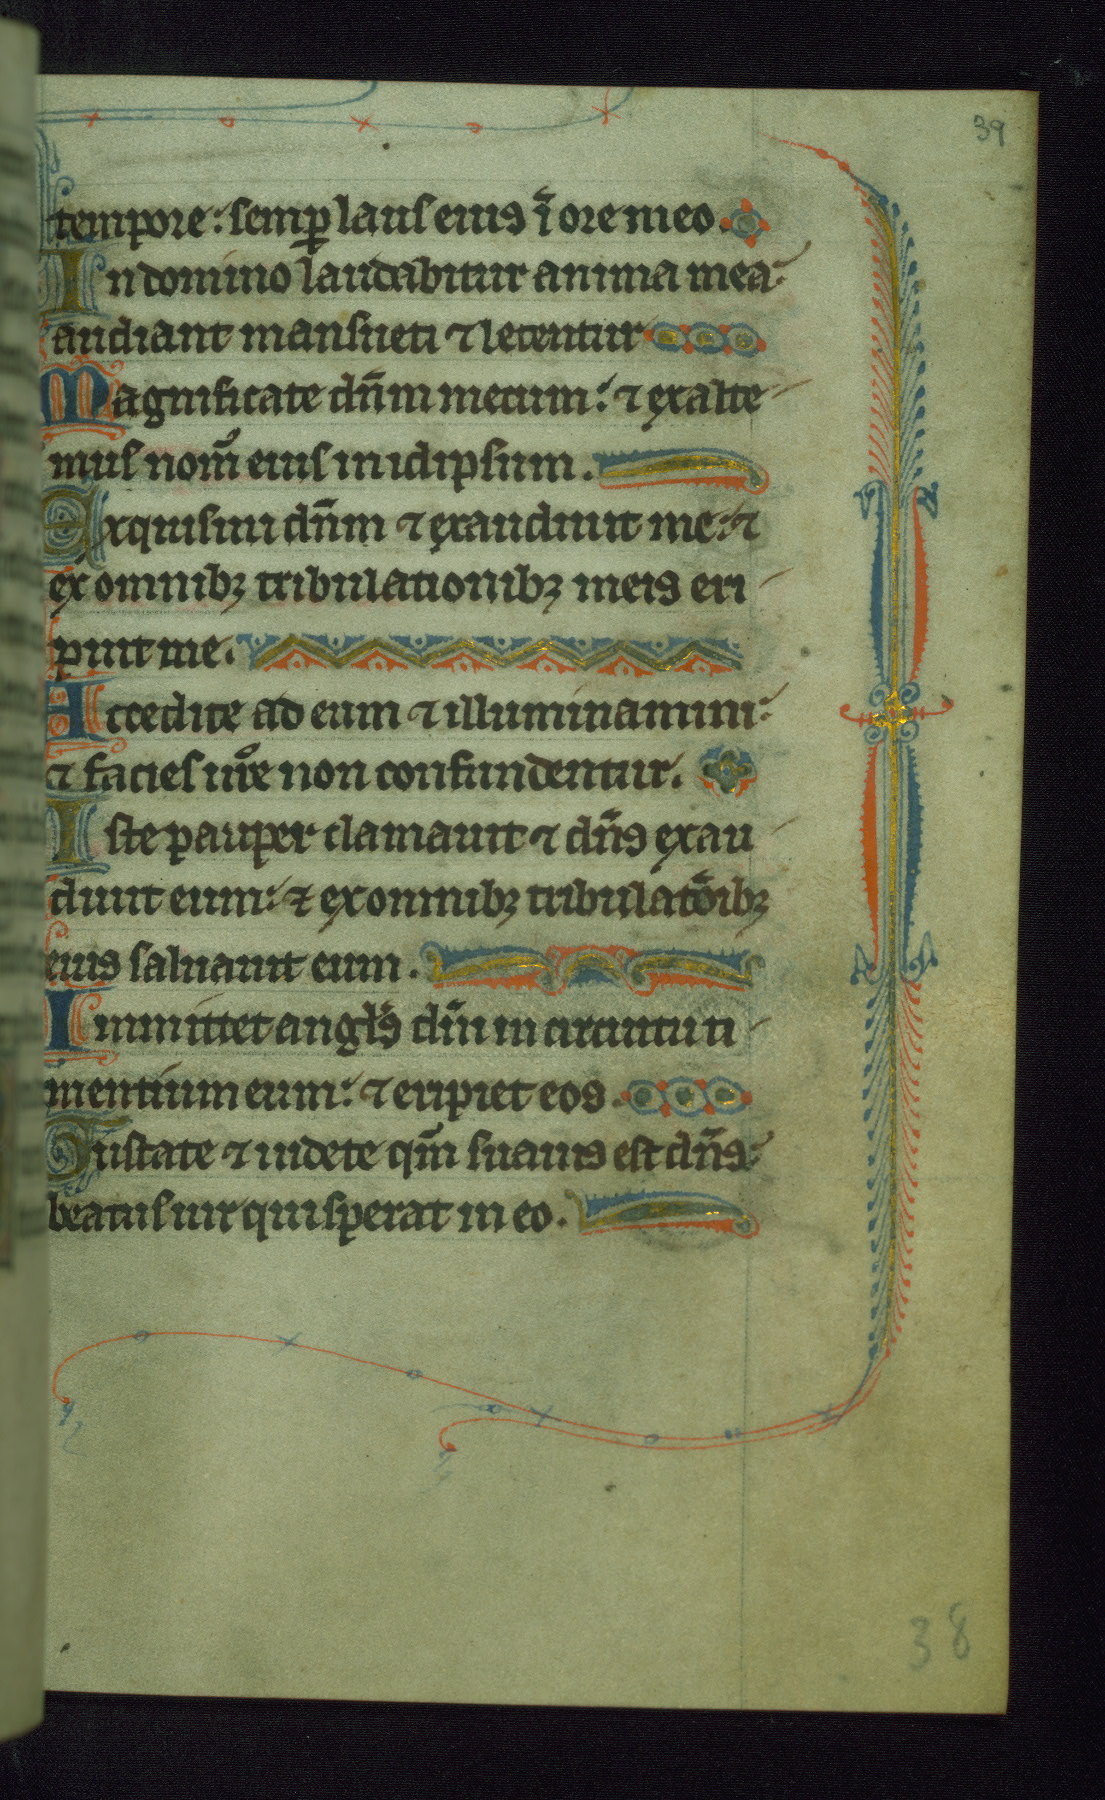 39
tempore: semp̱ laus eius ī ore meo.
In domino laudabitur anima mea:
audiant mansueti ⁊ letentur
Magnificate dn̄m mecum: ⁊ exalte
mus nom̄ eius in idipsum.
Exquisiui dn̄m ⁊ exaudiuit me: ⁊
ex omnibꝫ tribulationibꝫ meis eri
puit me.
Accedite ad eum ⁊ illuminamini:
⁊ facies ur̄e non confundentur.
Iste pauper clamauit ⁊ dn̄s exau
diuit eum: ⁊ ex omnibꝫ tribulatōibꝫ
eius saluauit eum.
Inmittet angl̄s dn̄i in circuitu ti
mentium eum: ⁊ eripiet eos.
Gustate ⁊ uidete qm̄ suauis est dn̄s:
beatus uir qui sperat in eo.
38